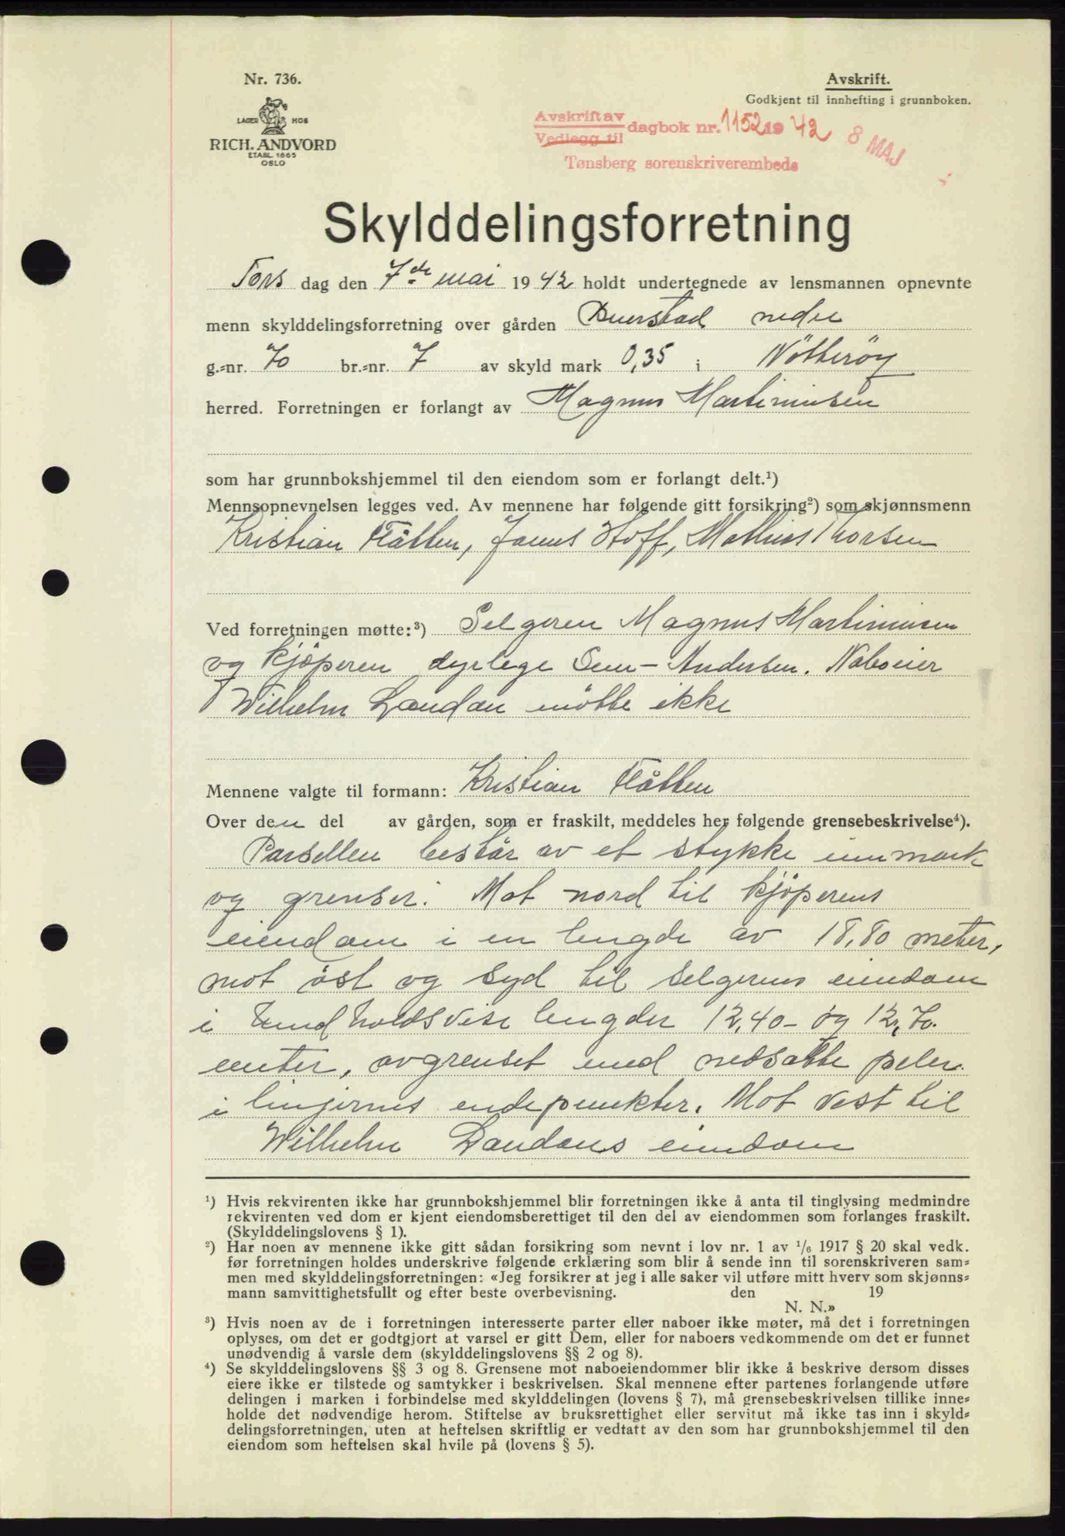 Nr. 736.
LAGER HOS
RICH. ANDVORD
ETABL. 1865
OSLO
Avskrift.
Godkjent til innhefting i grunnboken.
Avskrift av
Vedlegg til
dagbok nr. 1152 1942 8 MAJ
Tønsberg sorenskriverembede
Skylddelingsforretning
Tors dag den 7de mai 1942 holdt undertegnede av lensmannen opnevnte
menn skylddelingsforretning over gården Duerstad nedre
g.-nr. 70 br.-nr. 7 av skyld mark 0,35 i Nötterøy
herred. Forretningen er forlangt av Magnus Martiniusen
som har grunnbokshjemmel til den eiendom som er forlangt delt.¹)
Mennsopnevnelsen legges ved. Av mennene har følgende gitt forsikring²) som skjønnsmenn
Kristian Flåtten, Hoff, Mathias Thorsen
Ved forretningen møtte:³) Selgeren Magnus Martiniusen
og kjöperen dyrlege Sem-Andersen. Naboeier
Wilhelm Laudan mötte ikke
Mennene valgte til formann: Kristian Flåtten
Over den del av gården, som er fraskilt, meddeles her følgende grensebeskrivelse⁴).
Parsellen består av et stykke innmark
og grenser: Mot nord til kjöperens
eiendom i en lengde av 18,80 meter,
mot öst og syd til selgerens eiendom
i henholdsvise lengder 12,40 - og 12,70
meter, avgrenset med nedsatte peler
i linjernes endepunkter. Mot vest til
Wilhelm Laudans eiendom
¹) Hvis rekvirenten ikke har grunnbokshjemmel blir forretningen ikke å anta til tinglysing medmindre
rekvirenten ved dom er kjent eiendomsberettiget til den del av eiendommen som forlanges fraskilt.
(Skylddelingslovens § 1).
²) Har noen av mennene ikke gitt sådan forsikring som nevnt i lov nr. 1 av 1/6 1917 § 20 skal vedk.
før forretningen holdes underskrive følgende erklæring som blir å sende inn til sorenskriveren sam-
men med skylddelingsforretningen: «Jeg forsikrer at jeg i alle saker vil utføre mitt hverv som skjønns-
mann samvittighetsfullt og efter beste overbevisning. den 19
N. N.»
³) Hvis noen av de i forretningen interesserte parter eller naboer ikke møter, må det i forretningen
oplyses, om det er godtgjort at varsel er gitt Dem, eller for naboers vedkommende om det er funnet
unødvendig å varsle dem (skylddelingslovens §§ 2 og 8).
⁴) Se skylddelingslovens §§ 3 og 8. Grensene mot naboeiendommer blir ikke å beskrive dersom disses
eiere ikke er tilstede og samtykker i beskrivelsen. Skal mennene efter partenes forlangende utføre
delingen i marken i forbindelse med skylddelingen (lovens § 7), må grensebeskrivelsen tillike inne-
holde det nødvendige herom. Stiftelse av bruksrettighet eller servitut må ikke tas inn i skyld-
delingsforretningen, uten at heftelsen skriftlig er vedtatt av den som har grunnbokshjemmel til den
eiendom som heftelsen skal hvile på (lovens § 5).